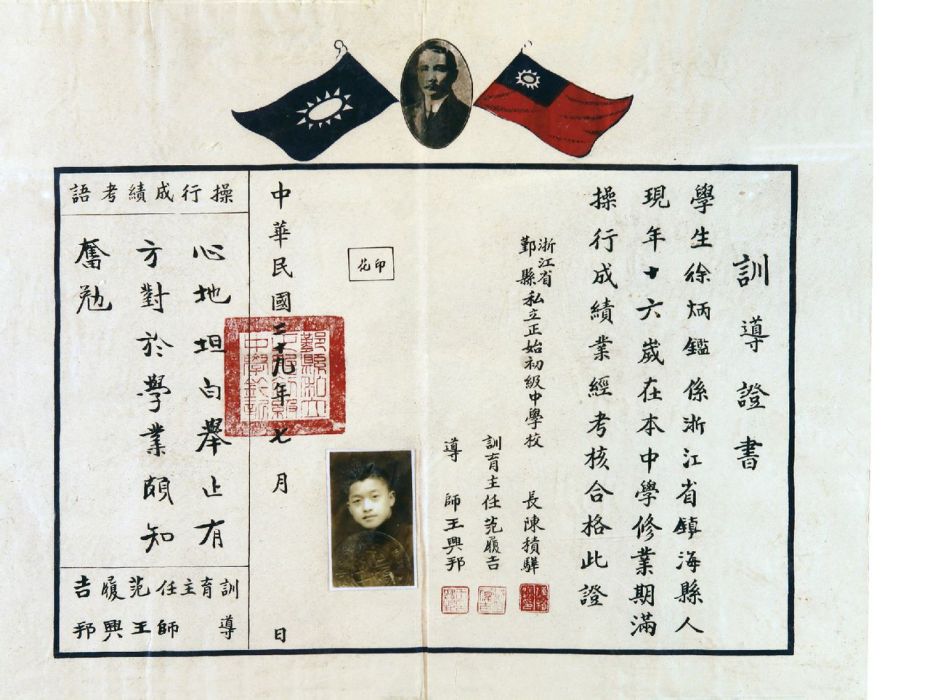 訓導證書
學生徐炳鑑係浙江省鎮海縣人
現年十六歲在本中學修業期滿
操行成績業經考核合格此證
浙江省
鄞縣私立正始初級中學校長陳積驊
訓育主任范履吉
導師王興邦
印花
中華民國二十九年七月日
操行成績考語
心地坦白舉止有
方對於學業頗知
奮勉
訓育主任范履吉
導師王興邦